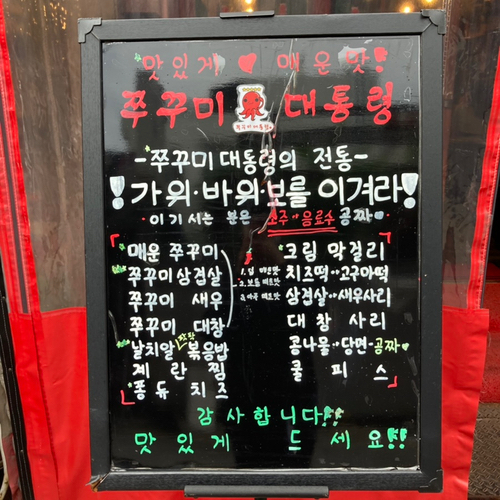 맛있게 ♥ 매운맛!
쭈꾸미 대통령
쭈꾸미대통령
-쭈꾸미 대통령의 전통-
!가위·바위·보를 이겨라!
이기시는 분은 소주·음료수 공짜
매운 쭈꾸미
쭈꾸미 삼겹살
쭈꾸미 새우
쭈꾸미 대창
날치알 볶음밥
계란찜
퐁듀치즈
1. 덜 매운맛
2. 보통 매운맛
3. 아주 매운맛
크림 막걸리
치즈떡··고구마떡
삼겹살··새우사리
대창 사리
콩나물··당면-공짜
쿨피스
감사합니다!!
맛있게 드세요!!